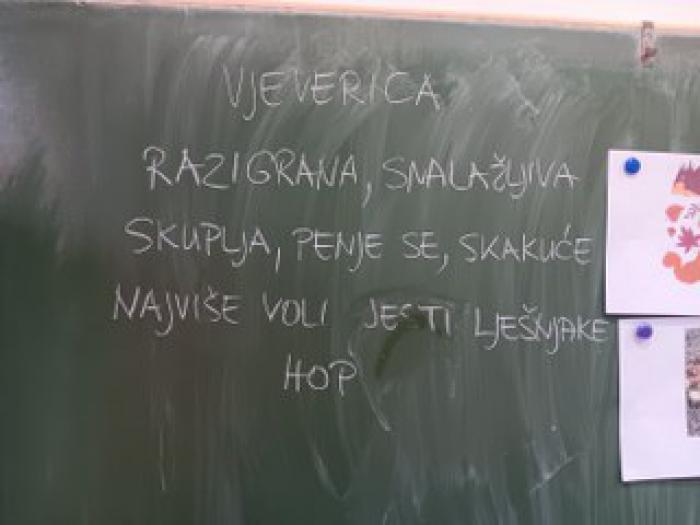 VJEVERICA
RAZIGRANA, SNALAŽLJIVA
SKUPLJA, PENJE SE, SKAKUĆE
NAJVIŠE VOLI JESTI LJEŠNJAKE
HOP